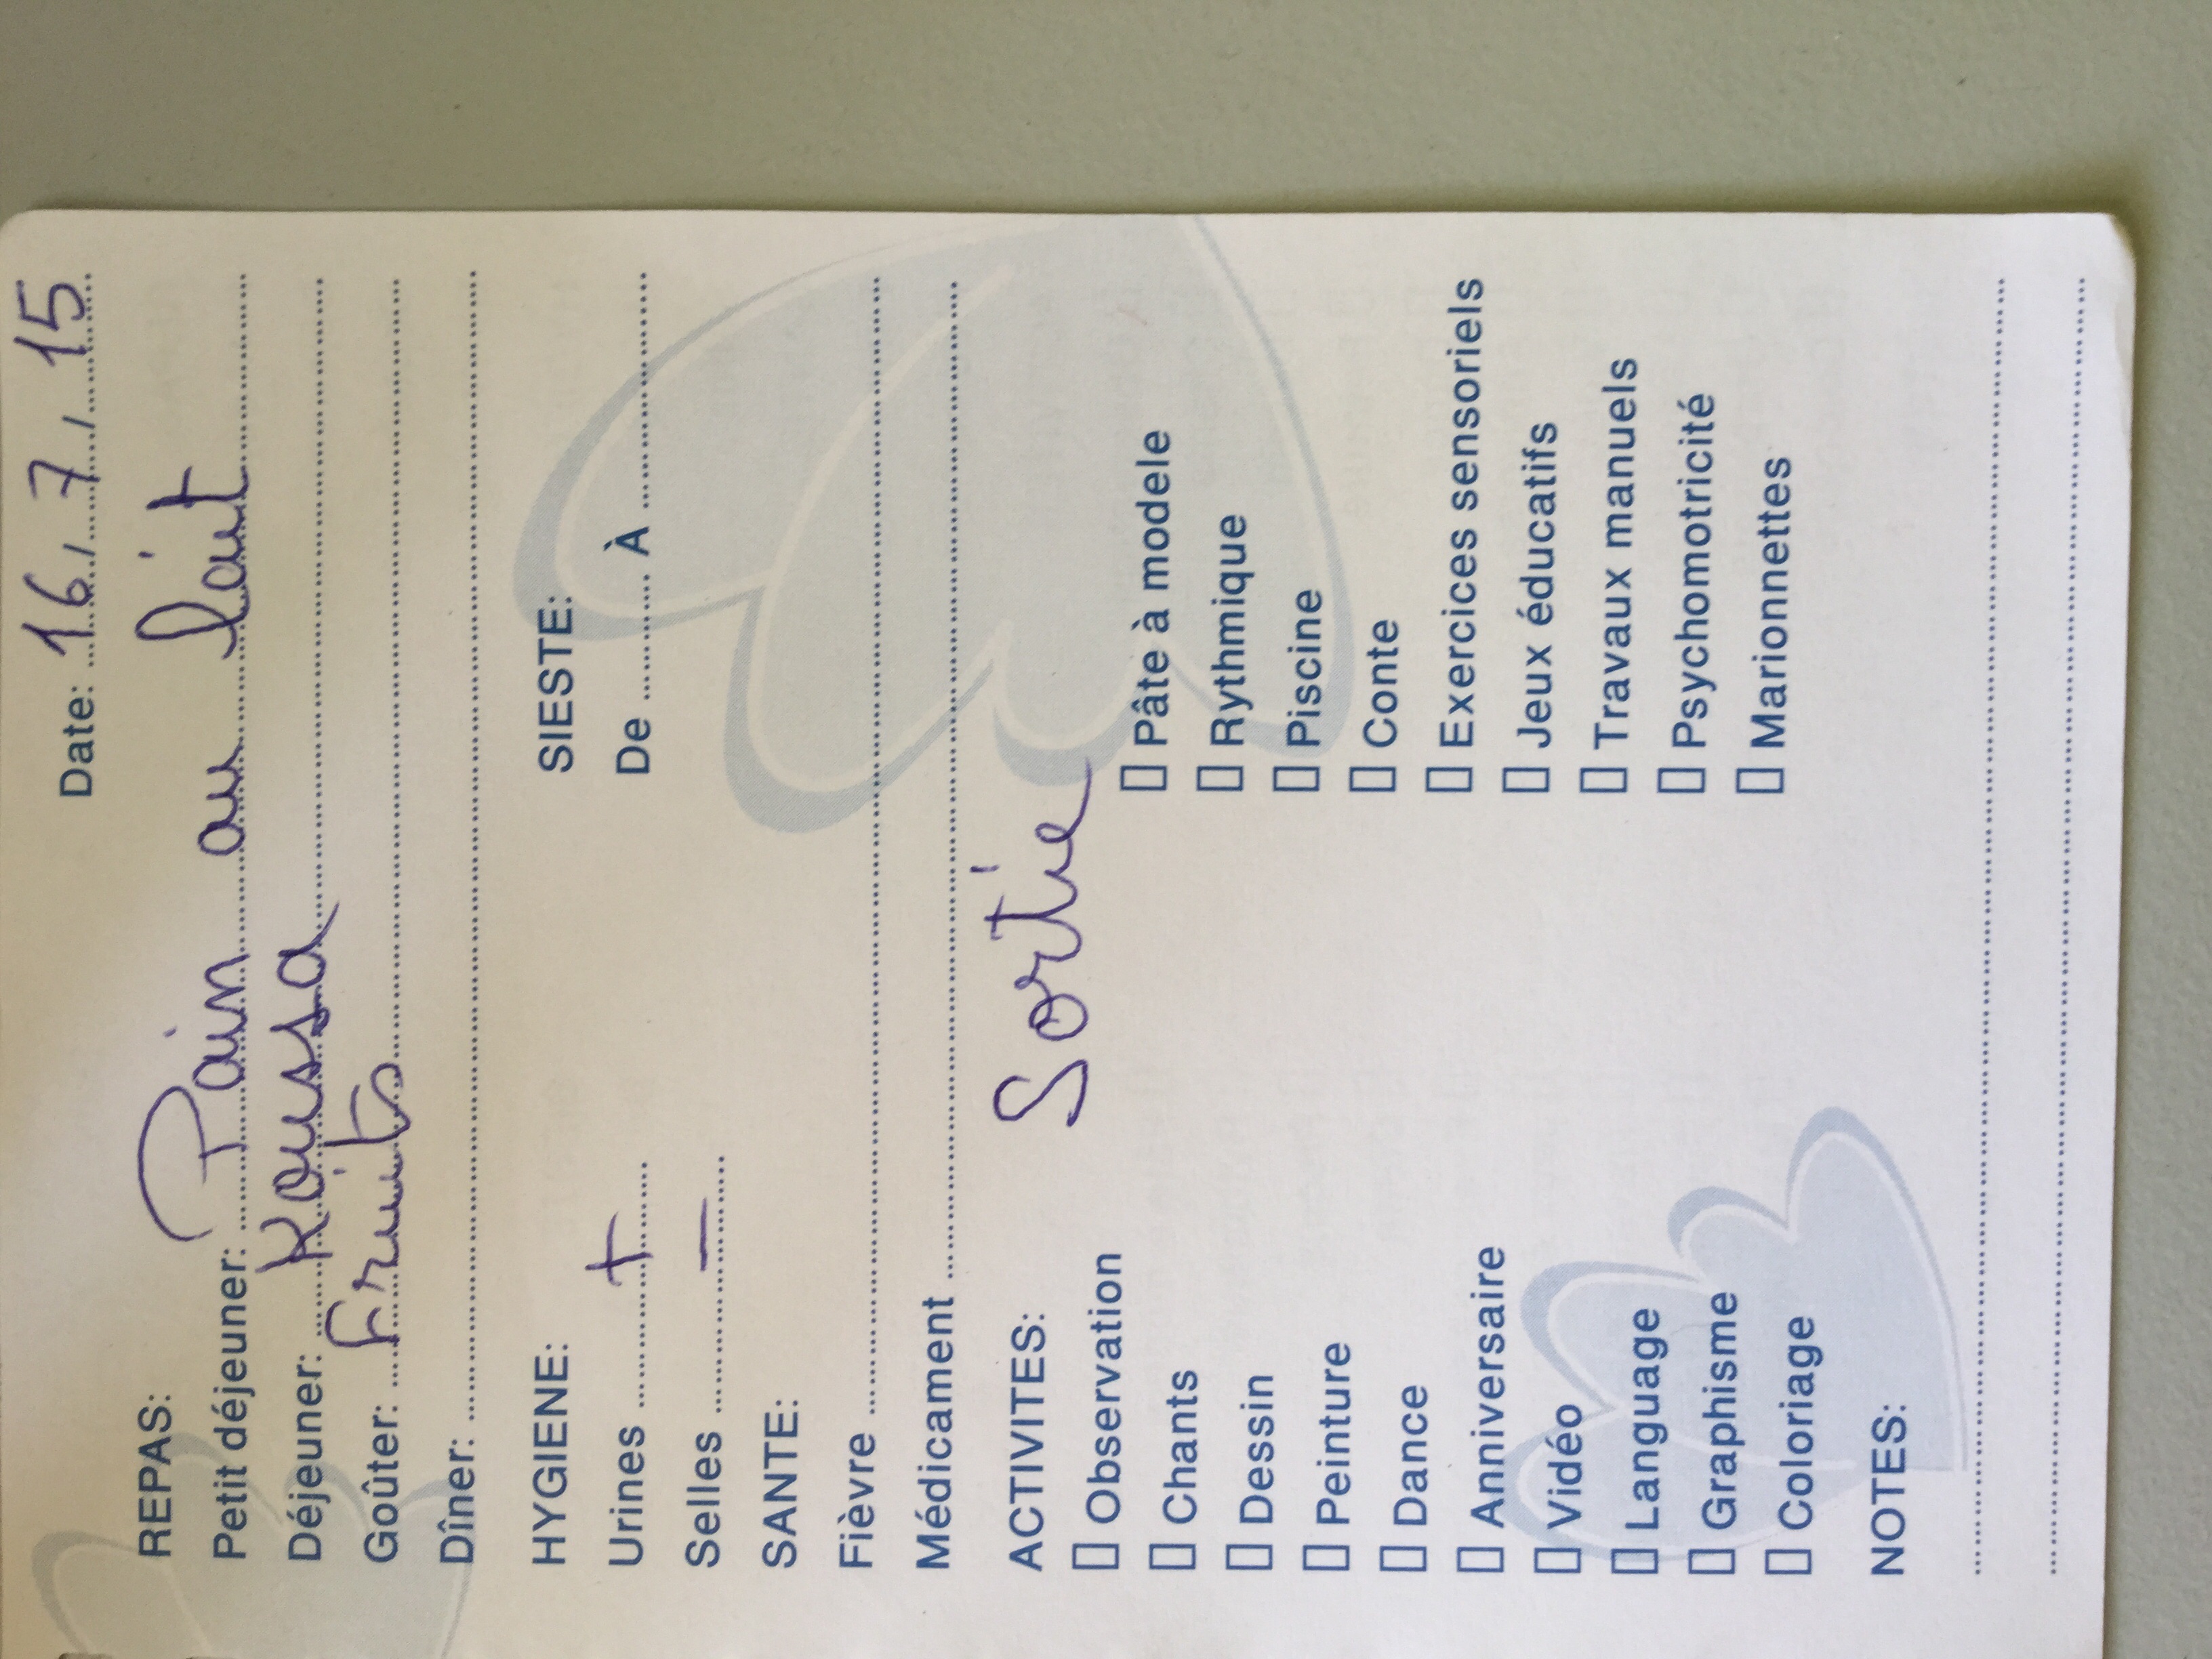 Date: 16 / 7 / 15
REPAS:
Petit déjeuner: Pain au lait
Déjeuner: Koussa
Goûter: Fruits
Dîner:
HYGIENE:
Urines +
Selles —
SIESTE:
De À
SANTE:
Fièvre
Médicament
ACTIVITES: Sortie
Observation
Chants
Dessin
Peinture
Dance
Anniversaire
Vidéo
Language
Graphisme
Coloriage
Pâte à modele
Rythmique
Piscine
Conte
Exercices sensoriels
Jeux éducatifs
Travaux manuels
Psychomotricité
Marionnettes
NOTES: